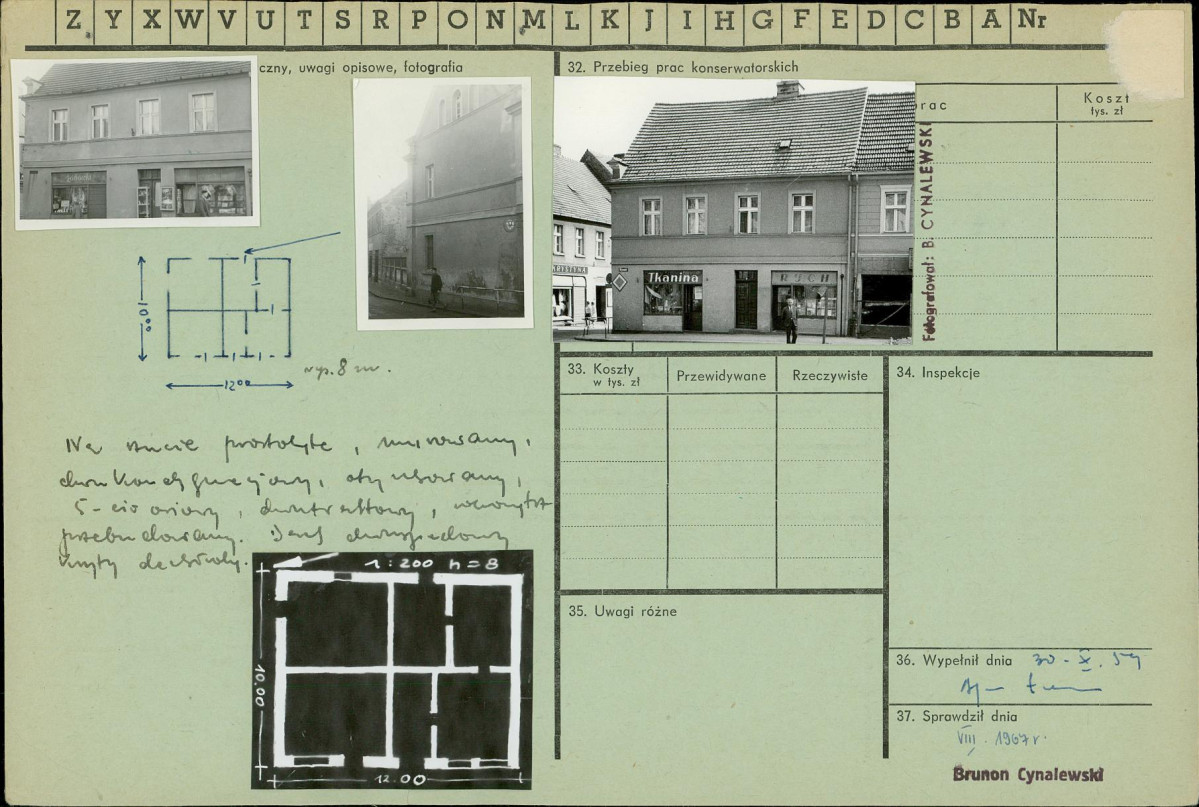 Z Y X W V U T S R P O N M L K J I H G F E D C B A Nr
czny, uwagi opisowe, fotografia
32. Przebieg prac konserwatorskich
prac
Koszt
tys. zł
Fotografował: B. CYNALEWSKI
KRYSTYNA
Tkanina
RUCH
10⁰⁰
12⁰⁰
wys. 8 m.
Na rzucie prostokąta, murowany,
dwukondygnacyjny, otynkowany,
5-cio osiowy, dwutraktowy, wewnątrz
przebudowany. Dach dwuspadowy
kryty dachówką.
1:200 h=8
10.00
12.00
33. Koszty
w tys. zł
Przewidywane
Rzeczywiste
34. Inspekcje
35. Uwagi różne
36. Wypełnił dnia 30-X.59
37. Sprawdził dnia
VIII. 1967 r.
Brunon Cynalewski